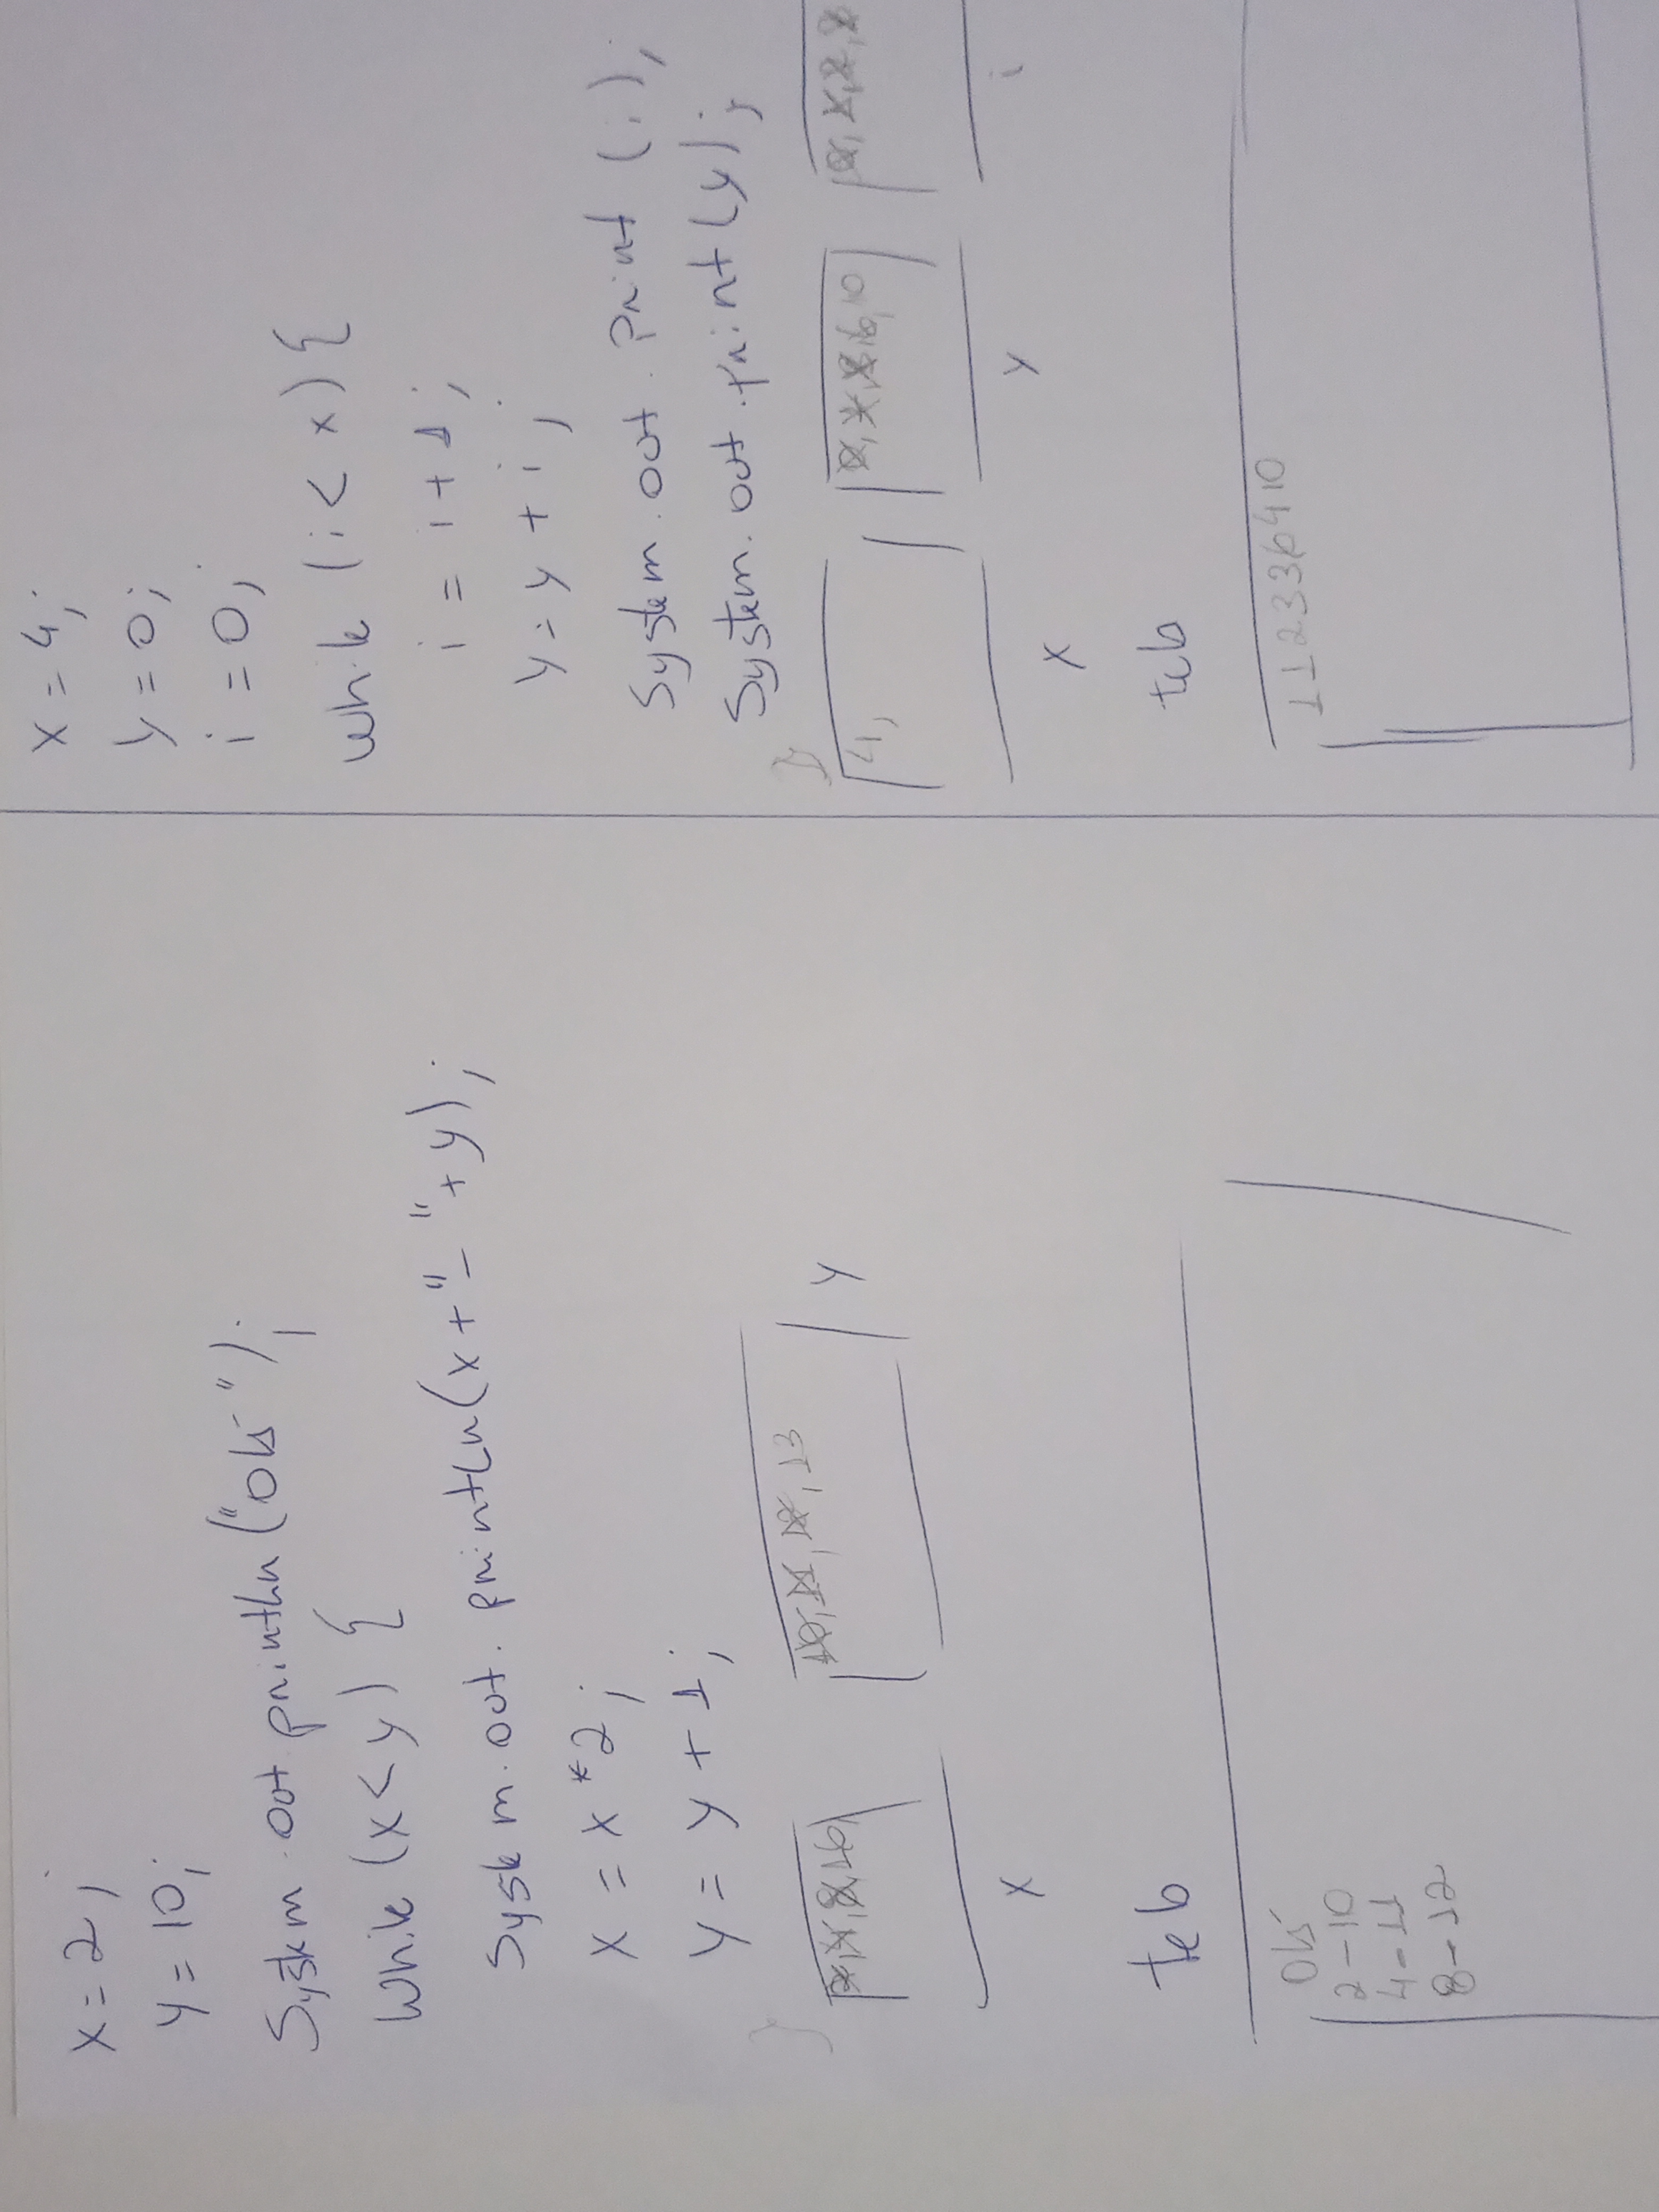 x = 2;
y = 10;
System.out println("Olá");
While (x < y) {
System.out.println(x + "-" + y);
x = x * 2;
y = y + 1;
}
2, 4, 8, 16,
10, 11, 12, 13
y
x
teb
Olá
2-10
4-11
8-12
x = 4;
y = 0;
i = 0;
while (i < x) {
i = i + 1;
y = y + i;
System.out.print(i);
System.out.print(y);
}
4,
0, 1, 3, 6, 10
0, 1, 2, 3
x
y
i
teb
112336410